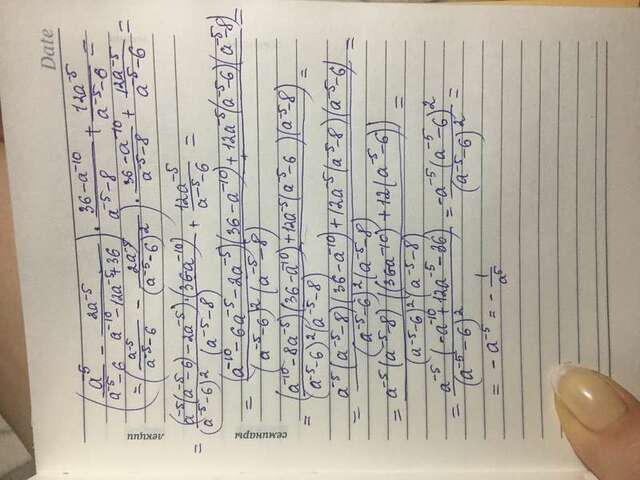 Date
лекции
семинары
(a^5/(a^-5-6) - 2a^-5/(a^-10-12a^-5+36)) · (36-a^-10)/(a^-5-8) + 12a^-5/(a^-5-6) =
= (a^-5/(a^-5-6) - 2a^-5/(a^-5-6)^2) · (36-a^-10)/(a^-5-8) + 12a^-5/(a^-5-6) =
= (a^-5(a^-5-6)-2a^-5)·(36a^-10)/((a^-5-6)^2 (a^-5-8)) + 12a^-5/(a^-5-6) =
= ((a^-10-6a^-5-2a^-5)(36-a^-10)+12a^-5(a^-5-6)(a^-5-8))/((a^-5-6)^2(a^-5-8)) =
= ((a^-10-8a^-5)(36-a^-10)+12a^-5(a^-5-6)(a^-5-8))/((a^-5-6)^2(a^-5-8)) =
= (a^-5(a^-5-8)(36-a^-10)+12a^-5(a^-5-8)(a^-5-6))/((a^-5-6)^2(a^-5-8)) =
= (a^-5(a^-5-8)((36a^-10)+12(a^-5-6)))/((a^-5-6)^2(a^-5-8)) =
= a^-5(-a^-10+12a^-5-36)/(a^-5-6)^2 = -a^-5(a^-5-6)^2/(a^-5-6)^2 =
= -a^-5 = -1/a^5